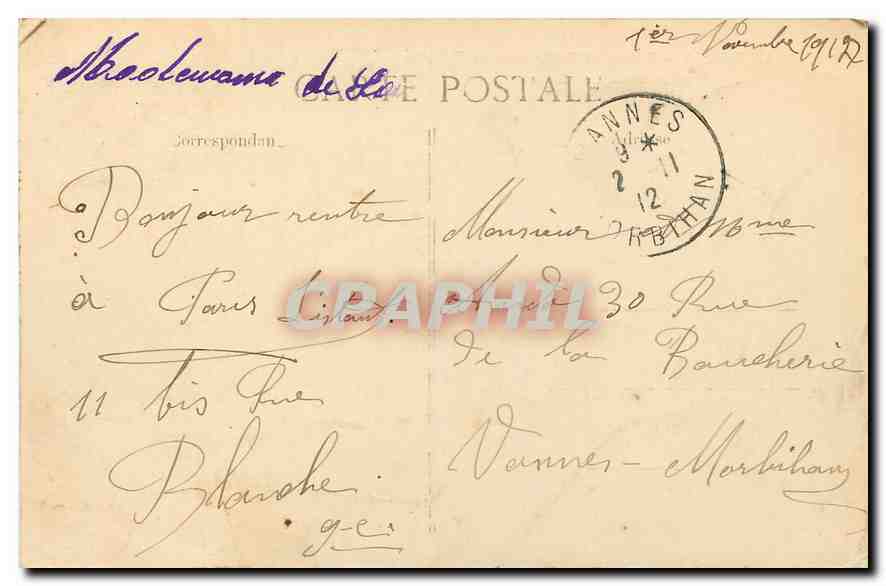 1er Novembre 1912
de
CARTE POSTALE
Correspondan
Adresse
VANNES
8 *
2 - 11
12
RBIHAN
Bonjour rentre
à Paris l'instant.
11 bis Rue
Blanche
Monsieur Mme
30 Rue
de la Boucherie
Vannes - Morbihan
CPAPHIL